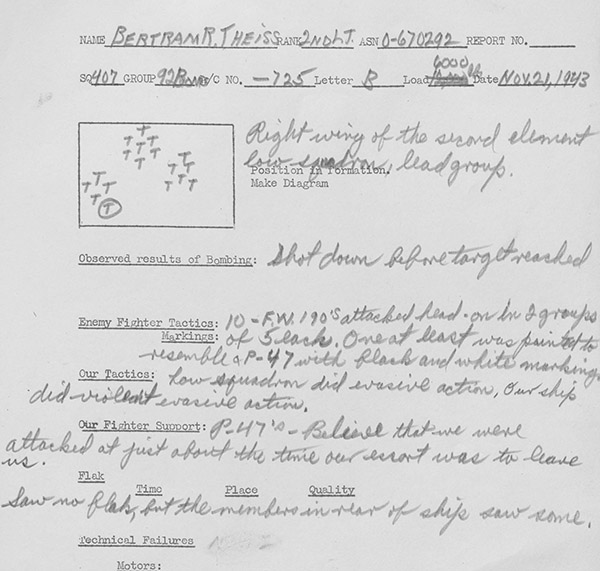 NAME BERTRAM R. THEISS RANK 2ND LT. ASN O-670292 REPORT NO.
SQ 407 GROUP 92 A/C NO. -725 Letter B Load 6000 lb Date NOV. 21, 1943
T T T T T T T T T T T T T T T T T T
Right wing of the second element
low squadron, lead group.
Position in Formation.
Make Diagram
Observed results of Bombing: Shot down before target reached
Enemy Fighter Tactics: 10 - F.W. 190's attacked head-on in 2 groups
Markings: of 5 each. One at least was painted to
resemble a P-47 with black and white markings
Our Tactics: Low squadron did evasive action. Our ship
did violent evasive action.
Our Fighter Support: P-47's - Believe that we were
attacked at just about the time our escort was to leave
us.
Flak
Time Place Quality
Saw no flak, but the members in rear of ship saw some.
Technical Failures
Motors: